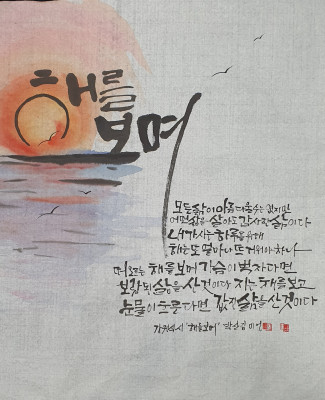 해를
보며
모든 삶이 아름다울 수는 없지만
어떤 삶을 살아도 값사한 삶이다
내가 사는 하루를 위해
해는 또 얼마나 뜨거워야 하나
떠오르는 해를 보며 가슴이 벅차다면
보람된 삶을 산 것이다 지는 해를 보고
눈물이 흐른다면 값진 삶을 산 것이다
"해를보며"